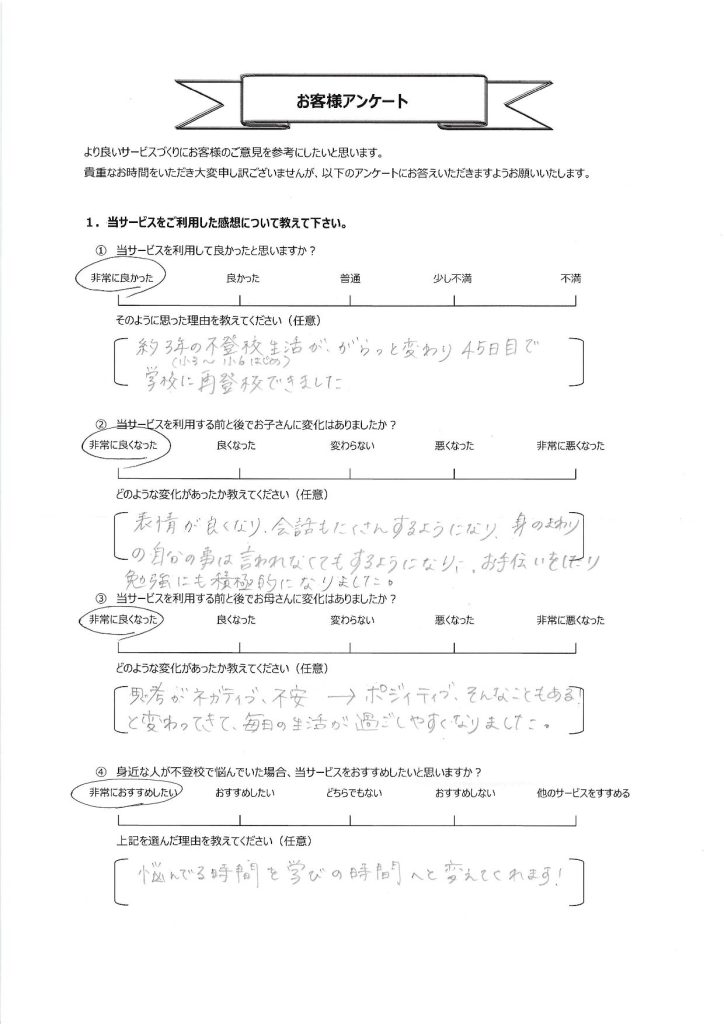 お客様アンケート
より良いサービスづくりにお客様のご意見を参考にしたいと思います。
貴重なお時間をいただき大変申し訳ございませんが、以下のアンケートにお答えいただきますようお願いいたします。
1．当サービスをご利用した感想について教えて下さい。
① 当サービスを利用して良かったと思いますか？
非常に良かった 良かった 普通 少し不満 不満
そのように思った理由を教えてください（任意）
約3年の不登校生活が、がらっと変わり 45日目で
(小3～小6はじめ)
学校に再登校できました
② 当サービスを利用する前と後でお子さんに変化はありましたか？
非常に良くなった 良くなった 変わらない 悪くなった 非常に悪くなった
どのような変化があったか教えてください（任意）
表情が良くなり、会話もたくさんするようになり、身のまわり
の自分の事は言われなくてもするようになり、お手伝いをしたり
勉強にも積極的になりました。
③ 当サービスを利用する前と後でお母さんに変化はありましたか？
非常に良くなった 良くなった 変わらない 悪くなった 非常に悪くなった
どのような変化があったか教えてください（任意）
思考がネガティブ、不安 → ポジィティブ、そんなこともある!
と変わってきて、毎日の生活が過ごしやすくなりました。
④ 身近な人が不登校で悩んでいた場合、当サービスをおすすめしたいと思いますか？
非常におすすめしたい おすすめしたい どちらでもない おすすめしない 他のサービスをすすめる
上記を選んだ理由を教えてください（任意）
悩んでる時間を学びの時間へと変えてくれます!